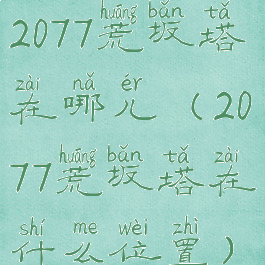 huāng bǎn tǎ
2077荒坂塔
zài nǎ ér
在哪儿（20
huāng bǎn tǎ zài
77荒坂塔在
shí me wèi zhì
什么位置）